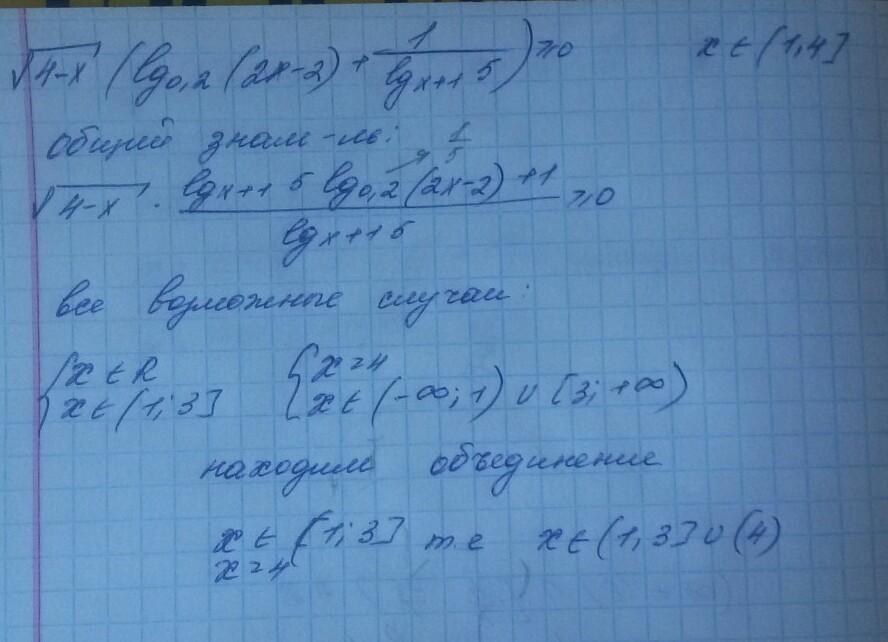 √4-x (lg0,2 (2x-2) + 1/lgx+1 5) ≥0 x ∈ (1,4]
общий знам-ль:
√4-x · (lgx+1 5 lg0,2 → 1/5 (2x-2) +1)/lgx+1 5 ≥0
все возможные случаи:
{x ∈ R {x=4
x ∈ (1; 3] x ∈ (-∞; 1) ∪ [3; +∞)
находим объединение
x ∈ (1; 3] т.е x ∈ (1, 3] ∪ (4)
x=4